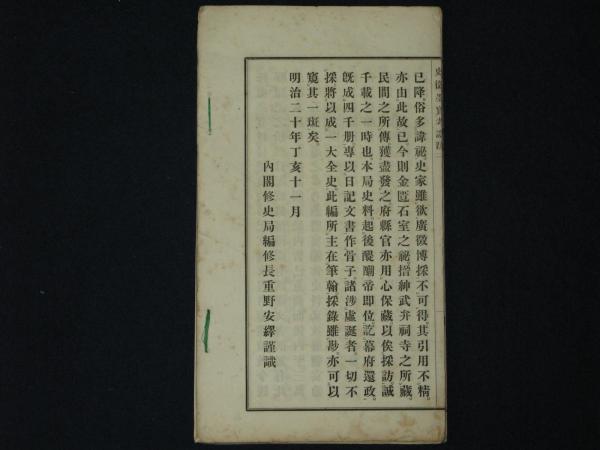 已降俗多諱祕史家雖欲廣徵博採不可得其引用不精。
亦由此故已今則金匱石室之祕搢紳武弁祠寺之所藏。
民間之所傳獲盡發之府縣官亦用心保藏以俟採訪誠
千載之一時也本局史料起後醍醐帝即位訖幕府還政。
既成四千册專以日記文書作骨子諸涉虛誕者一切不
採將以成一大全史此編所主在筆翰採錄雖尠亦可以
窺其一斑矣。
明治二十年丁亥十一月
內閣修史局編修長重野安繹謹識